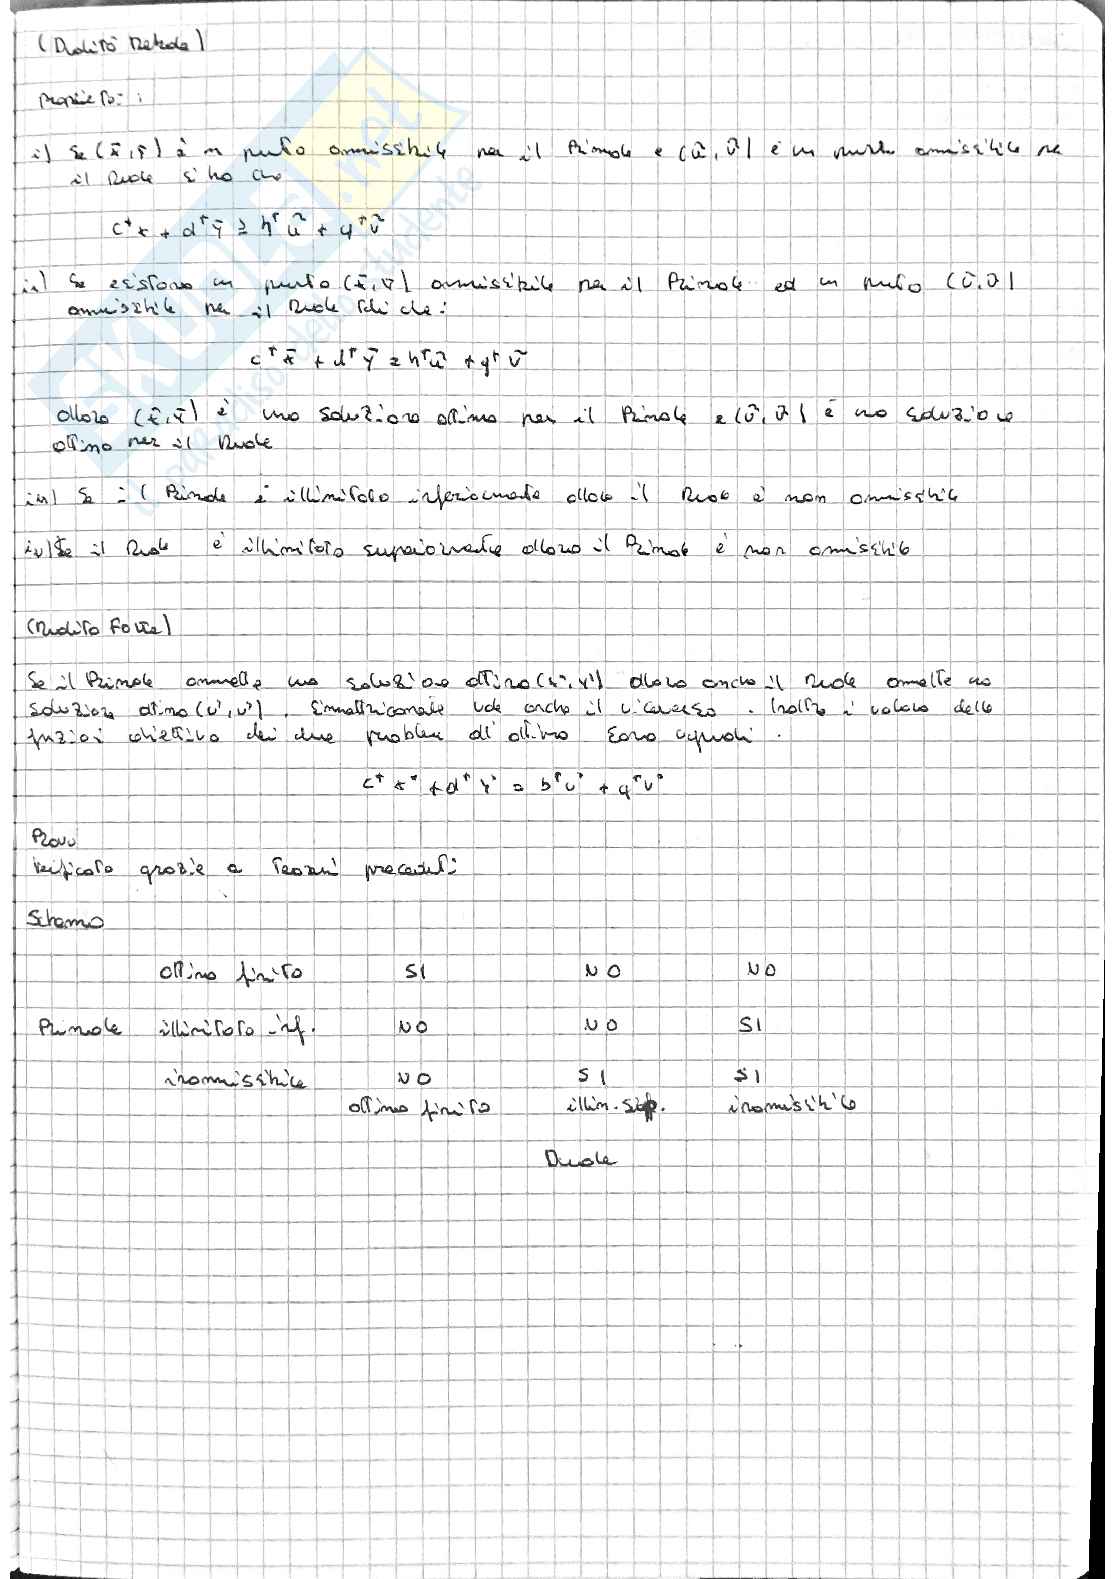 (Dualità Debole)
Proprietà:
i) Se (x̄, ȳ) è un punto ammissibile per il Primale e (ū, v̄) è un punto ammissibile per
il Duale si ha che
cᵀx̄ + dᵀȳ ≥ hᵀū + qᵀv̄
ii) Se esistono un punto (x̄, ȳ) ammissibile per il Primale ed un punto (ū, v̄)
ammissibile per il Duale tali che:
cᵀx̄ + dᵀȳ = hᵀū + qᵀv̄
allora (x̄, ȳ) è una soluzione ottima per il Primale e (ū, v̄) è una soluzione
ottima per il Duale
iii) Se il Primale è illimitato inferiormente allora il Duale è non ammissibile
iv) Se il Duale è illimitato superiormente allora il Primale è non ammissibile
(Dualità Forte)
Se il Primale ammette una soluzione ottima (x*, y*) allora anche il Duale ammette una
soluzione ottima (u*, v*). Simmetricamente vale anche il viceversa. Inoltre i valori delle
funzioni obiettivo dei due problemi all'ottimo sono uguali.
cᵀx* + dᵀy* = bᵀu* + qᵀv*
Prova
Verificata grazie a Teoremi precedenti
Schema
ottimo finito SI NO NO
Primale illimitato inf. NO NO SI
inammissibile NO SI SI
ottimo finito illim. sup. inammissibile
Duale
SKUOLA.net
il paradiso dello studente